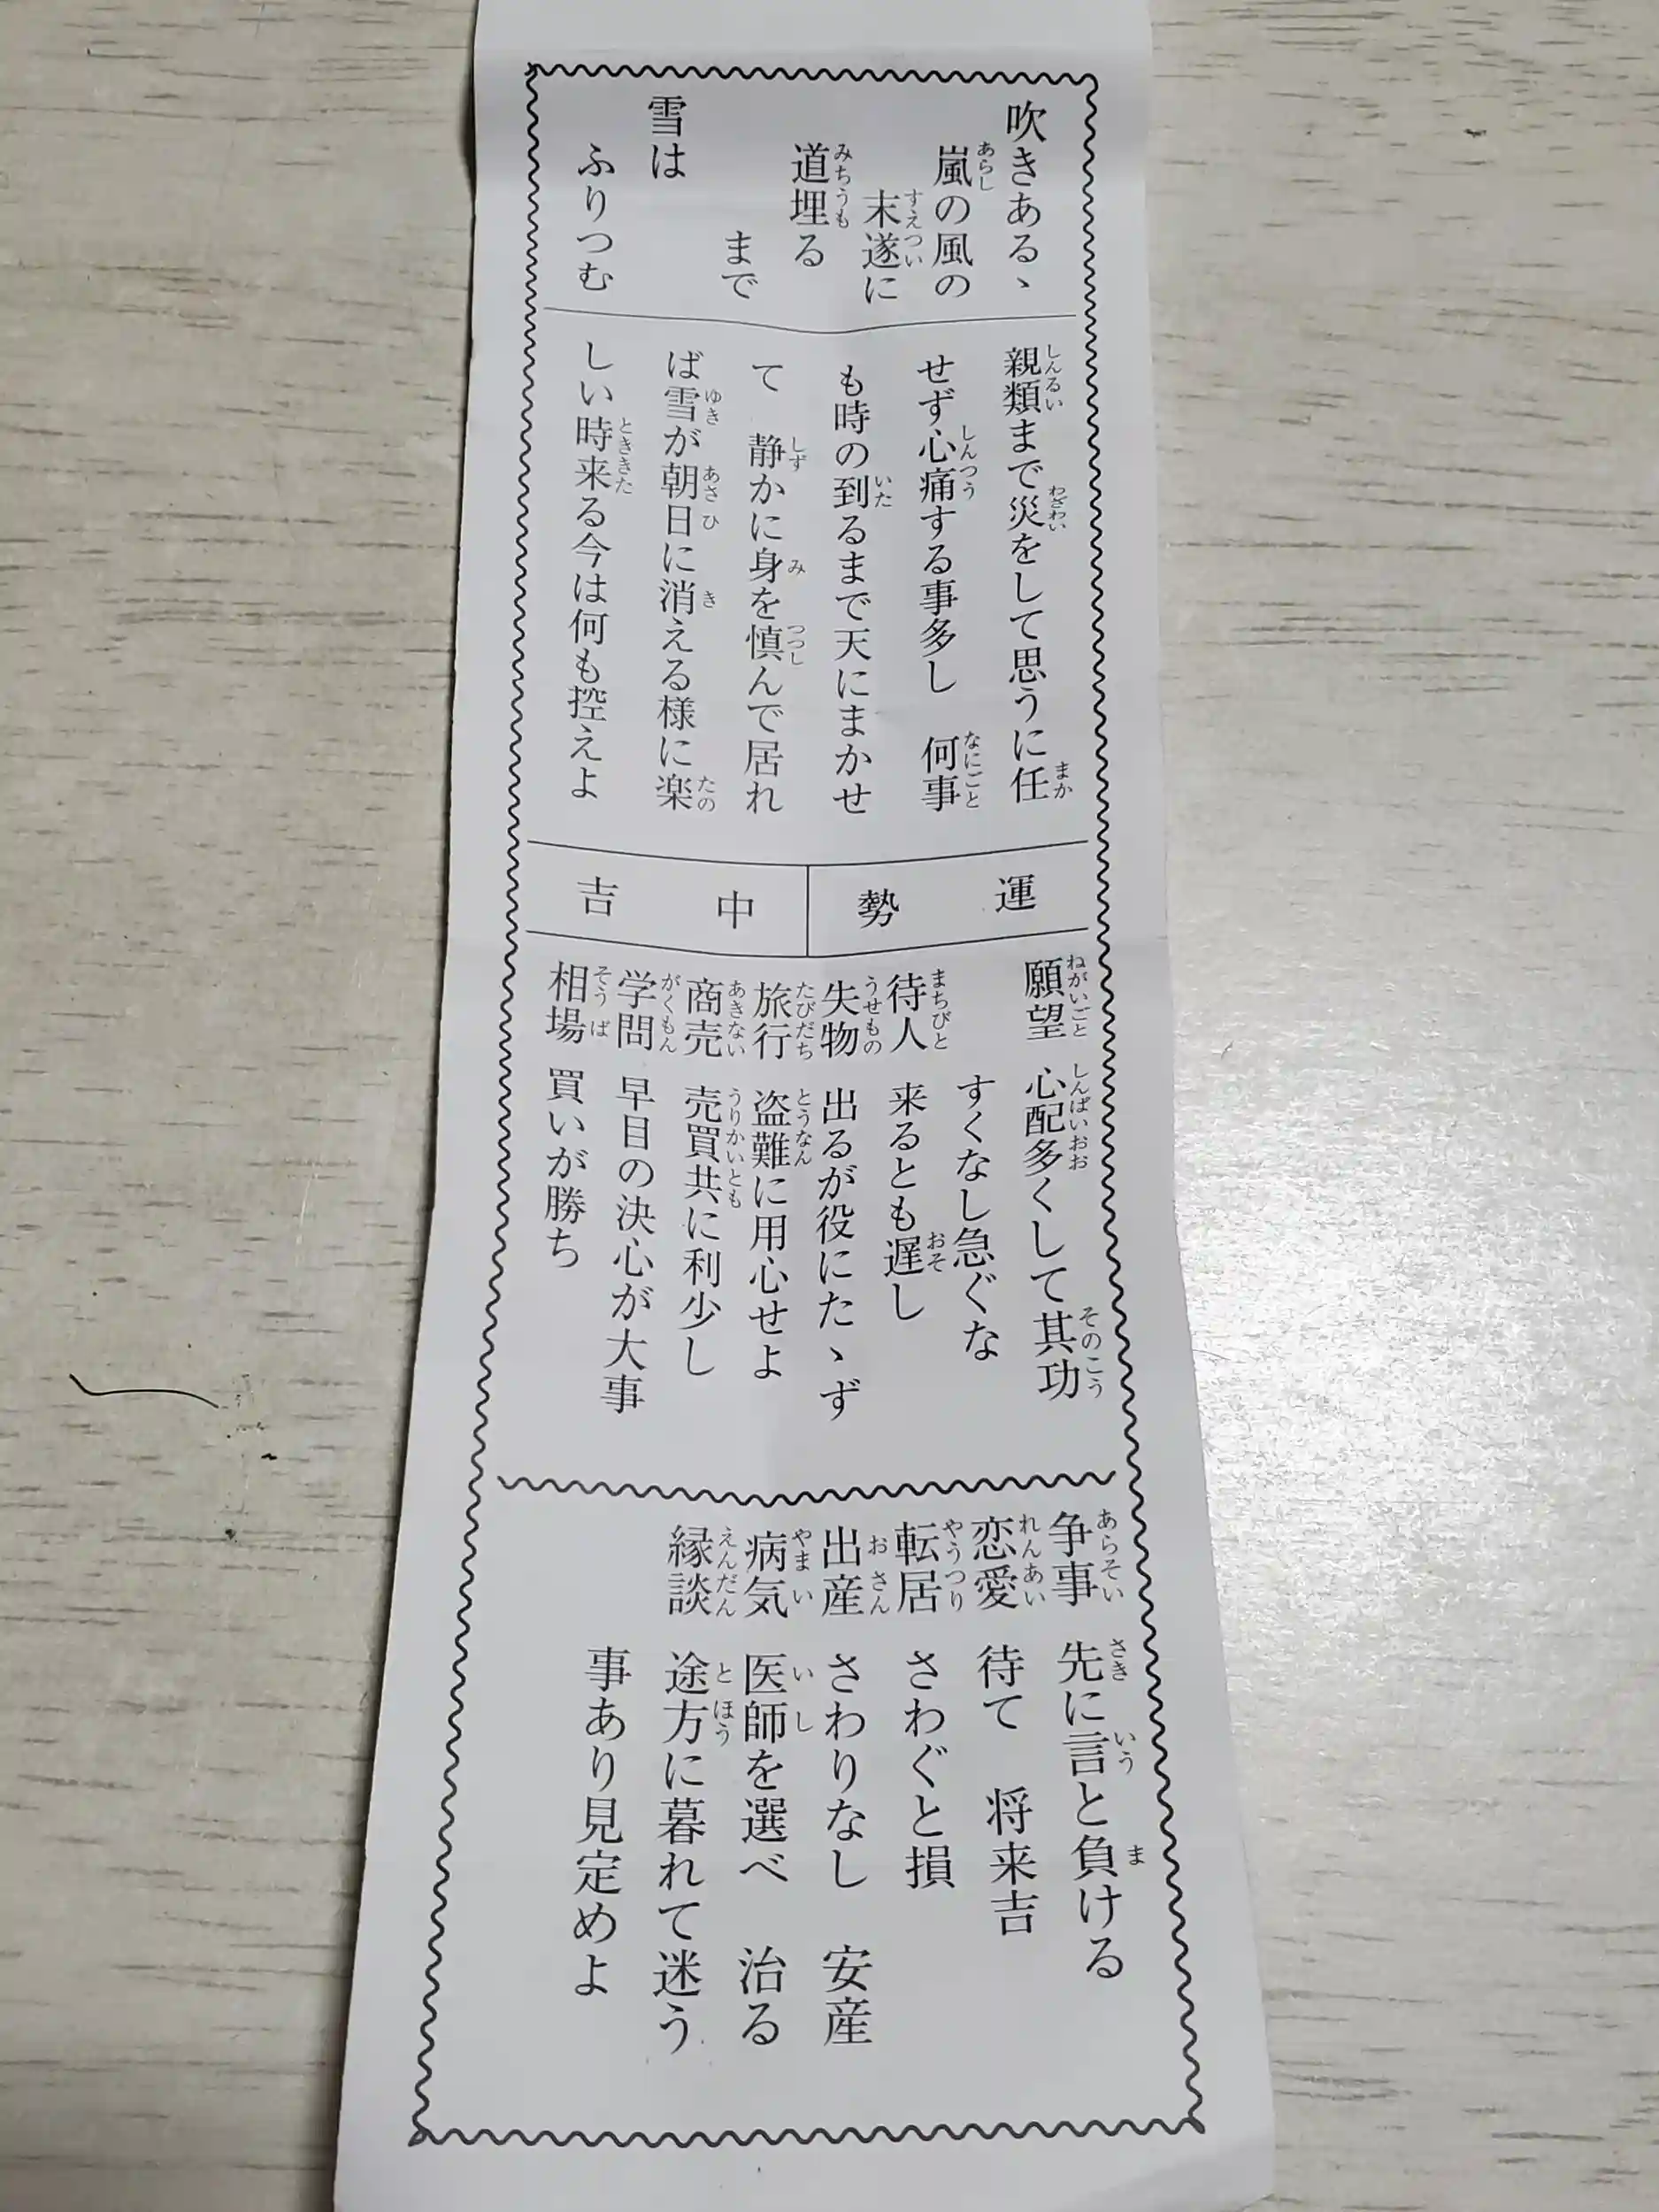 吹きあるゝ
嵐の風の
末遂に
道埋る
まで
雪は
ふりつむ
親類まで災をして思うに任
せず心痛する事多し　何事
も時の到るまで天にまかせ
て　静かに身を慎んで居れ
ば雪が朝日に消える様に楽
しい時来る今は何も控えよ
運勢
中吉
願望　心配多くして其功
すくなし急ぐな
待人　来るとも遅し
失物　出るが役にたゝず
旅行　盗難に用心せよ
商売　売買共に利少し
学問　早目の決心が大事
相場　買いが勝ち
争事　先に言と負ける
恋愛　待て　将来吉
転居　さわぐと損
出産　さわりなし　安産
病気　医師を選べ　治る
縁談　途方に暮れて迷う
事あり見定めよ